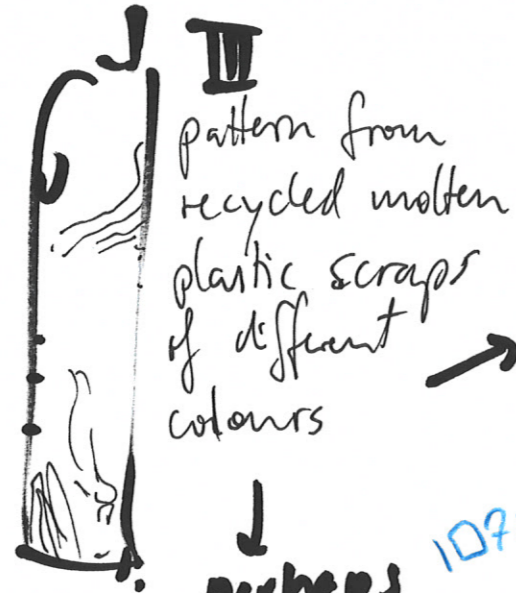 III
pattern from
recycled molten
plastic scraps
of different
colours
107
perhaps